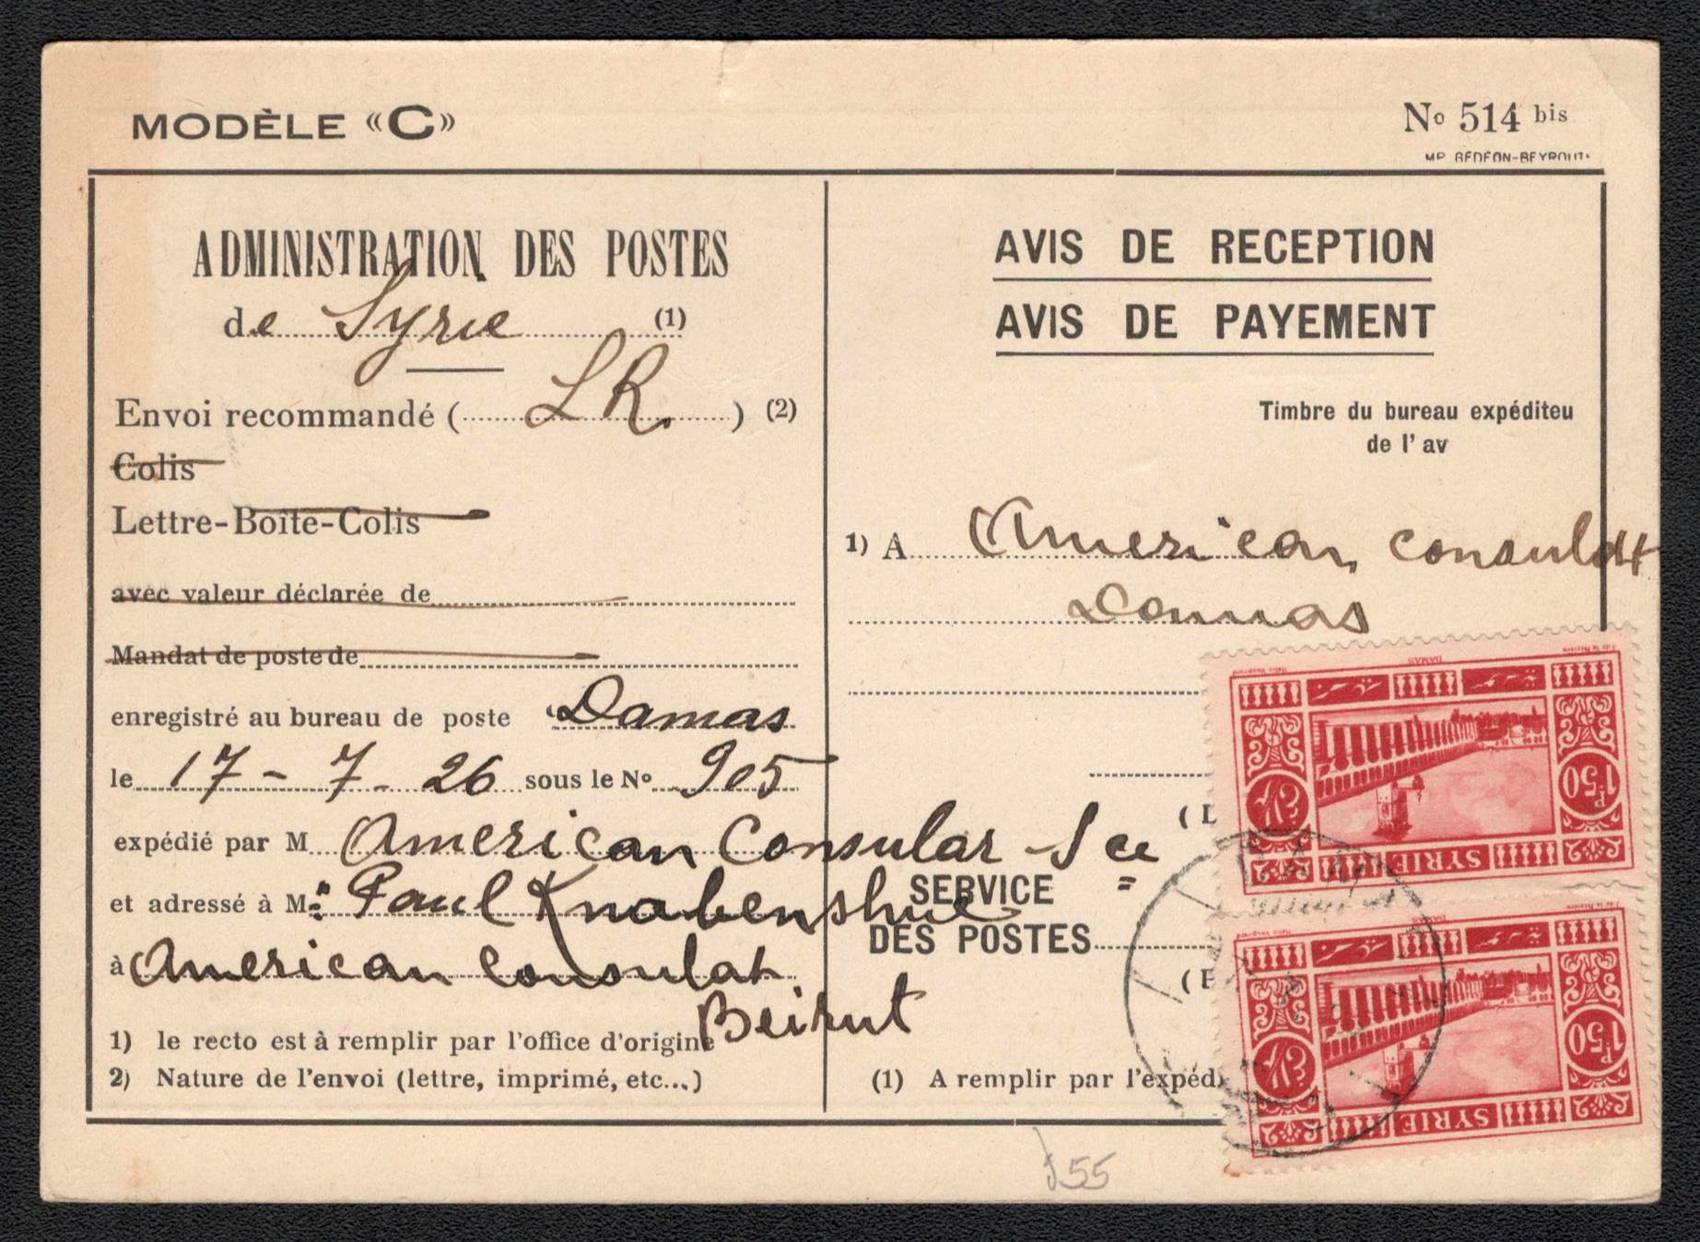 MODÈLE «C»
No 514 bis
ADMINISTRATION DES POSTES
de Syrie (1)
Envoi recommandé ( LR. ) (2)
Colis
Lettre-Boîte-Colis
avec valeur déclarée de
Mandat de poste de
enregistré au bureau de poste Damas
le 17 - 7 - 26 sous le No 905
expédié par M American Consular Sce
et adressé à Mr Paul Knabenshue
à American Consulat
Beirut
1) le recto est à remplir par l'office d'origine
2) Nature de l'envoi (lettre, imprimé, etc...)
AVIS DE RECEPTION
AVIS DE PAYEMENT
Timbre du bureau expéditeu
de l'av
1) A American Consulat
Damas
SERVICE
DES POSTES
(1) A remplir par l'expéd
DAMAS
1P.50
SYRIE
DAMAS
1P.50
SYRIE
55